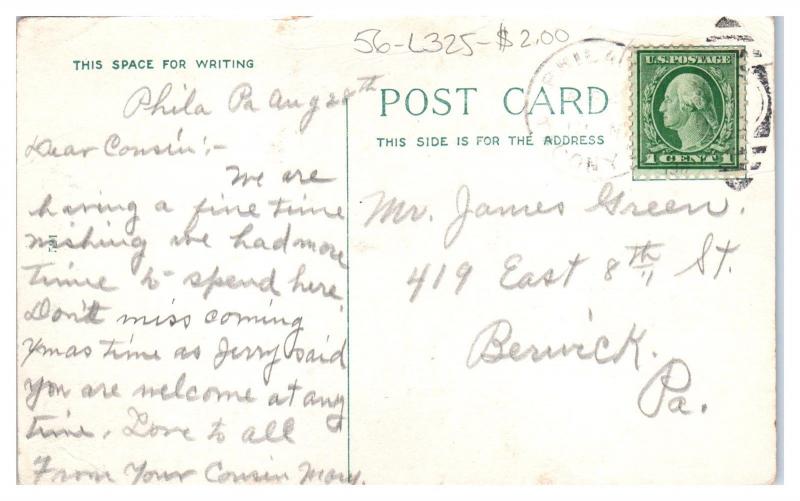 56-L325-$2.00
THIS SPACE FOR WRITING
Phila Pa Aug 28th
Dear Cousin:-
We are
having a fine time
wishing we had more
time to spend here.
Don't miss coming
Xmas time as Jerry said
you are welcome at any
time. Love to all
From Your Cousin Mary.
191
POST CARD
THIS SIDE IS FOR THE ADDRESS
U.S. POSTAGE
1 CENT 1
Mr. James Green.
419 East 8th St.
Berwick.
Pa.